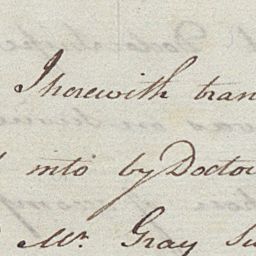 I herewith tran
into by Docto
Mr. Gray Su